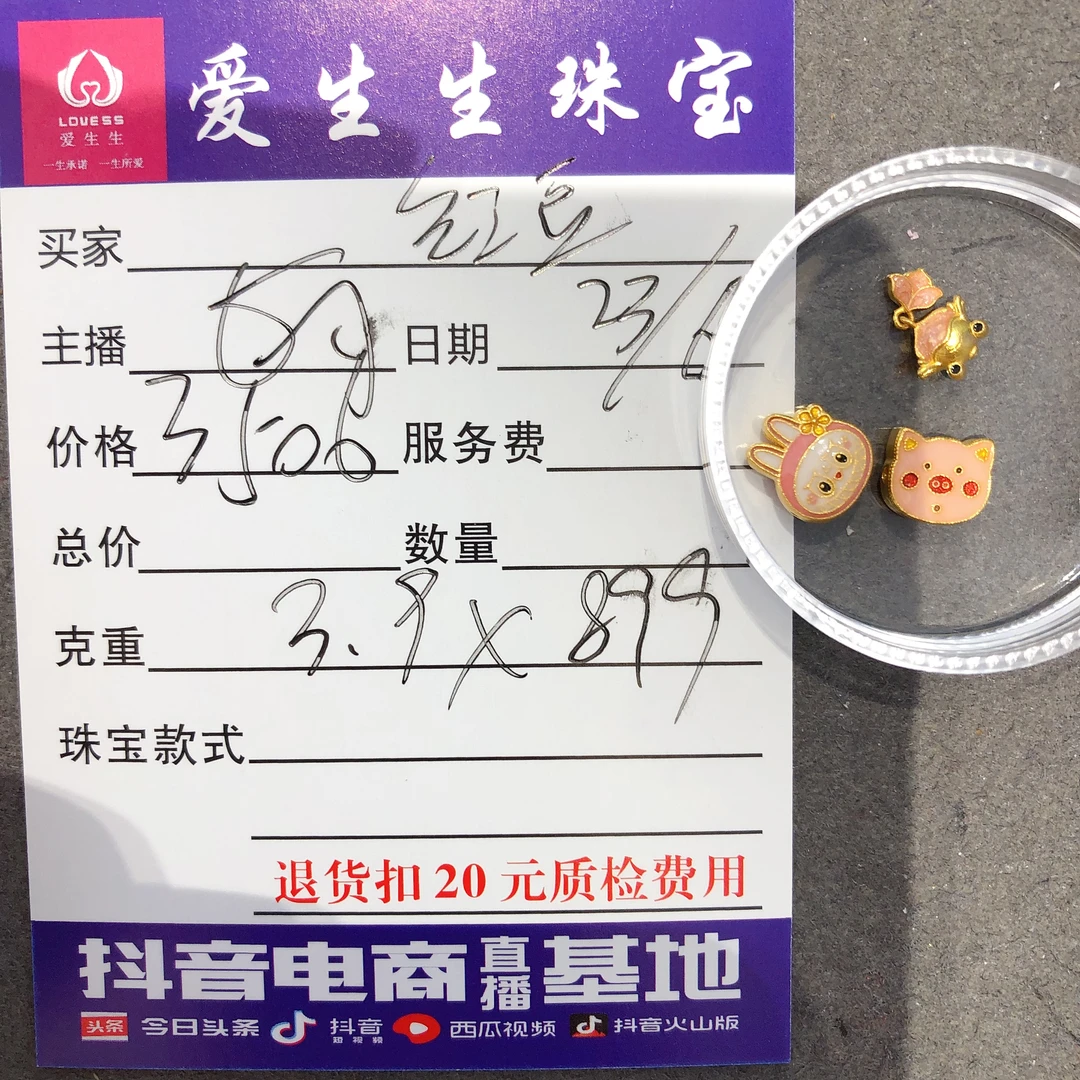 爱生生珠宝
LOVESS
爱生生
一生承诺 一生所爱
买家 红豆
主播 日期 23/
价格 3500 服务费
总价 数量
克重 3.9 X 899
珠宝款式
退货扣 20 元质检费用
抖音电商直播基地
头条 今日头条 抖音短视频 西瓜视频 抖音火山版